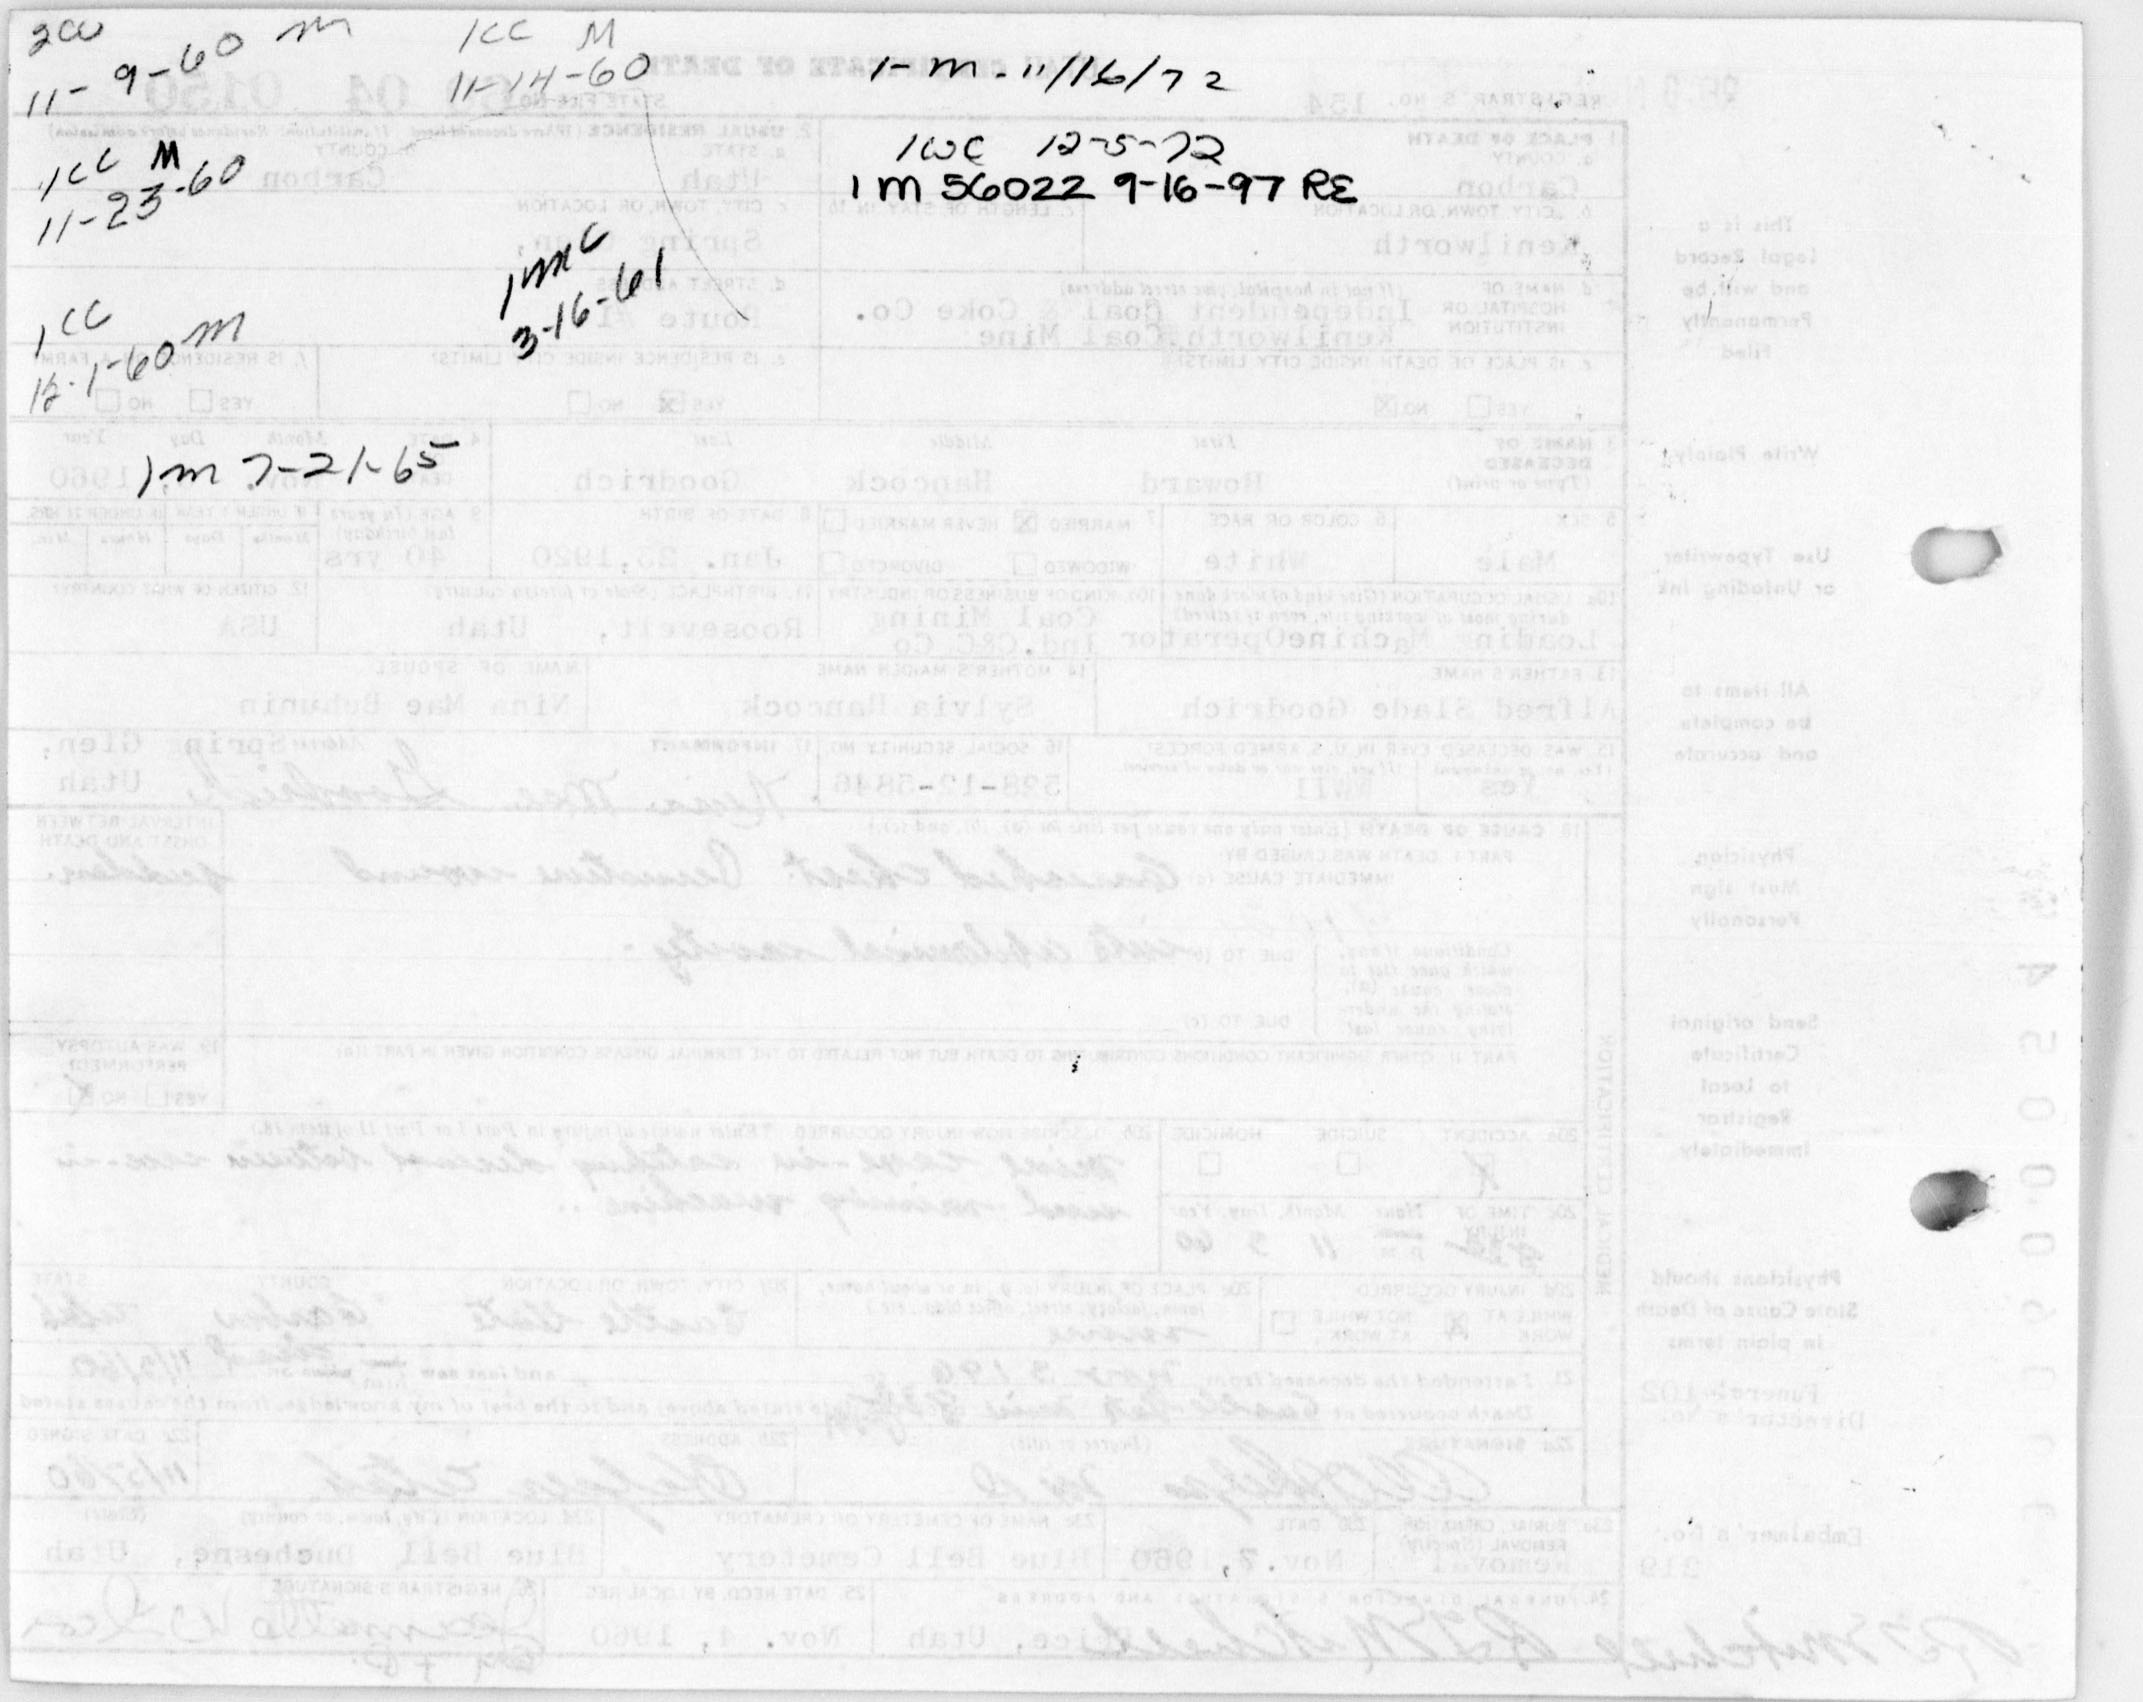 2cc M
11-9-60
1cc M
11-14-60
1-m-11/16/72
1cc M
11-23-60
1cc 12-5-72
1 m 56022 9-16-97 RE
1mc
3-16-61
1cc M
12-1-60
1m 7-21-65
REGISTRAR'S NO. 154
STATE FILE NO. 60 04 0150
This is a
Legal Record
and will be
Permanently
Filed
1 PLACE OF DEATH
a. COUNTY
Carbon
2. USUAL RESIDENCE (Where deceased lived. If institution: Residence before admission)
a. STATE
Utah
b. COUNTY
Carbon
b. CITY, TOWN, OR LOCATION
Kenilworth
c. LENGTH OF STAY IN 1b
c. CITY, TOWN, OR LOCATION
Spring Glen,
d. NAME OF HOSPITAL OR INSTITUTION
(If not in hospital, give street address)
Independent Coal & Coke Co.
Kenilworth Coal Mine
d. STREET ADDRESS
Route #1
e. IS PLACE OF DEATH INSIDE CITY LIMITS?
YES NO X
e. IS RESIDENCE INSIDE CITY LIMITS?
YES X NO
f. IS RESIDENCE ON A FARM?
YES NO
Write Plainly,
3 NAME OF DECEASED
(Type or print)
First Middle Last
Howard Hancock Goodrich
4. DATE OF DEATH
Month Day Year
Nov. 1960
Use Typewriter
or Unfading Ink
5 SEX
Male
6 COLOR OR RACE
White
7 MARRIED X NEVER MARRIED
WIDOWED DIVORCED
8 DATE OF BIRTH
Jan. 23, 1920
9 AGE (In years last birthday)
40 yrs
IF UNDER 1 YEAR
Months Days
IF UNDER 24 HRS.
Hours Min.
10a USUAL OCCUPATION (Give kind of work done during most of working life, even if retired)
Loading Machine Operator
10b. KIND OF BUSINESS OR INDUSTRY
Coal Mining
Ind. C&C Co
11. BIRTHPLACE (State or foreign country)
Roosevelt, Utah
12. CITIZEN OF WHAT COUNTRY?
USA
All items to
be complete
and accurate
13 FATHER'S NAME
Alfred Slade Goodrich
14 MOTHER'S MAIDEN NAME
Sylvia Hancock
NAME OF SPOUSE
Nina Mae
15. WAS DECEASED EVER IN U. S. ARMED FORCES?
(Yes, no, or unknown) (If yes, give war or dates of service)
Yes WWII
16 SOCIAL SECURITY NO.
528-12-5846
17 INFORMANT
Nina Mae Goodrich
Spring Glen,
Utah
Physician
Must sign
Personally
18 CAUSE OF DEATH (Enter only one cause per line for (a), (b), and (c).)
PART I DEATH WAS CAUSED BY:
IMMEDIATE CAUSE (a) Crushed chest. Puncture wound
into abdominal cavity -
INTERVAL BETWEEN
ONSET AND DEATH
sudden
Conditions, if any,
which gave rise to
above cause (a),
stating the under-
lying cause last
DUE TO (b)
DUE TO (c)
Send original
Certificate
to Local
Registrar
Immediately
PART II OTHER SIGNIFICANT CONDITIONS CONTRIBUTING TO DEATH BUT NOT RELATED TO THE TERMINAL DISEASE CONDITION GIVEN IN PART I(a)
19 WAS AUTOPSY PERFORMED?
YES NO X
MEDICAL CERTIFICATION
20a ACCIDENT SUICIDE HOMICIDE
20b. DESCRIBE HOW INJURY OCCURRED (Enter nature of injury in Part I or Part II of item 18.)
Mine cave-in catching deceased between cave-in
and mining machine
20c TIME OF INJURY Hour Month, Day, Year
11 3 60
Physicians should
State Cause of Death
in plain terms
20d INJURY OCCURRED
WHILE AT WORK X NOT WHILE AT WORK
20e PLACE OF INJURY (e. g., in or about home, farm, factory, street, office bldg., etc.)
mine
20f CITY, TOWN, OR LOCATION COUNTY STATE
Castle Gate Carbon Utah
21 I attended the deceased from Nov 3 1960
and last saw
Death occurred at
stated above) and to the best of my knowledge, from the causes stated
Funeral 102
Director's No.
22a SIGNATURE (Degree or title)
M D
22b ADDRESS
Helper Utah
22c DATE SIGNED
Embalmer's No.
219
23a BURIAL, CREMATION, REMOVAL (Specify)
Removal
23b DATE
Nov. 7, 1960
23c NAME OF CEMETERY OR CREMATORY
Blue Bell Cemetery
23d LOCATION (City, town, or county) (State)
Blue Bell Duchesne, Utah
24 FUNERAL DIRECTOR'S SIGNATURE AND ADDRESS
R J Mitchell
Price, Utah
25. DATE RECD. BY LOCAL REG
Nov. 4, 1960
26. REGISTRAR'S SIGNATURE